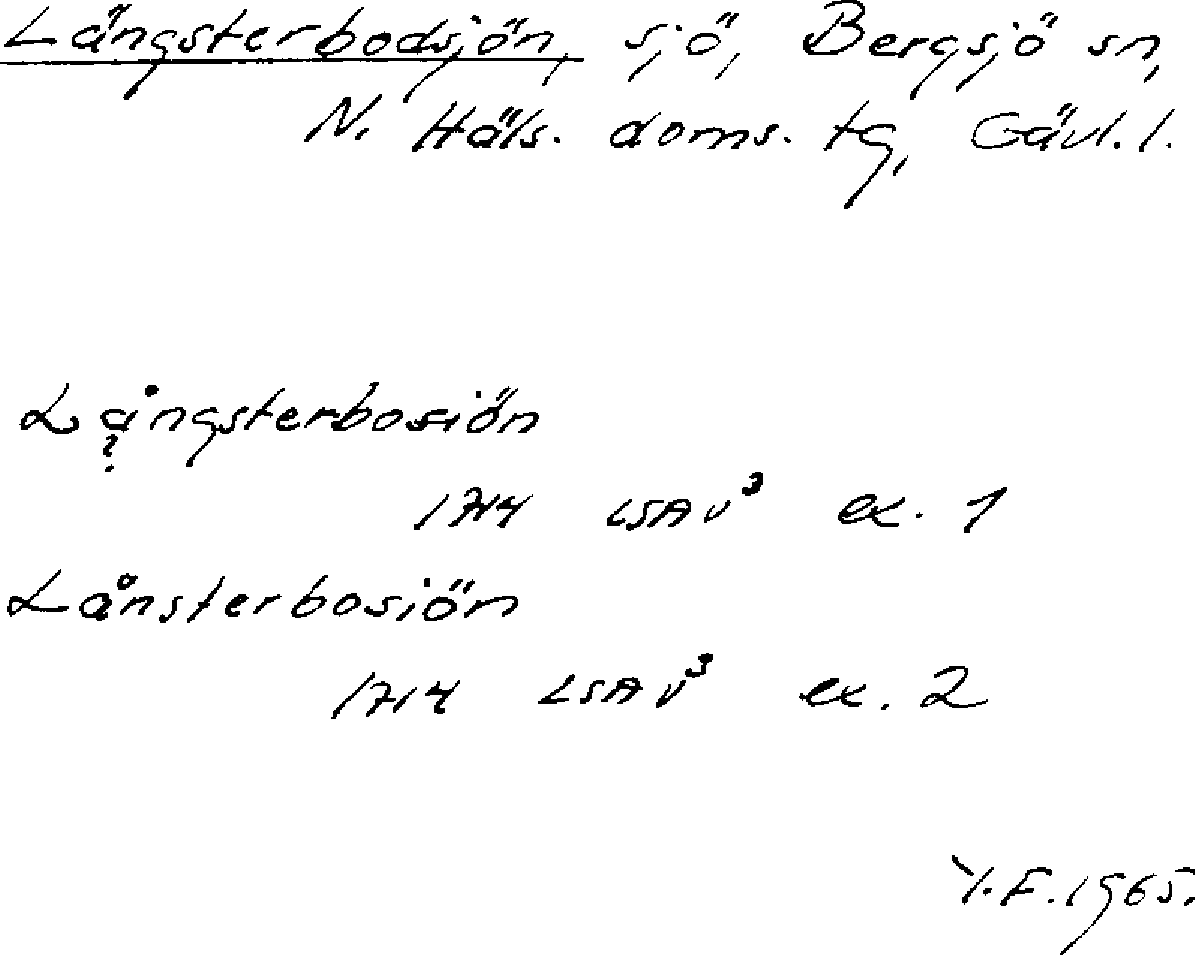 Längsterbodsjön, sjö, Bergsjö sn,
N. Häls. doms. tg, Gävl. l.
Långsterbosiön
?
1714 LSA V³ ex. 1
Lånsterbosiön
1714 LSA V³ ex. 2
Y.F. 1965.